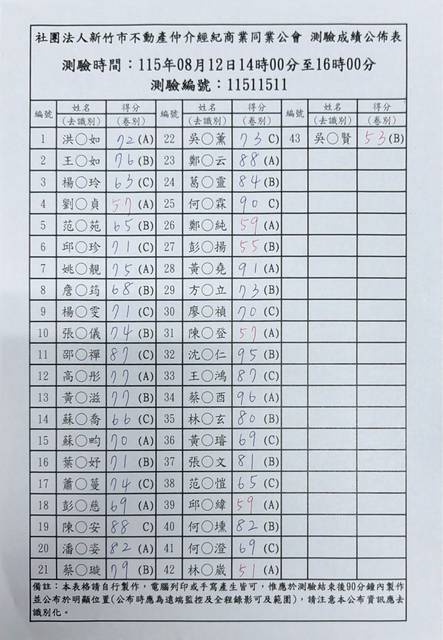 社團法人新竹市不動產仲介經紀商業同業公會 測驗成績公佈表
測驗時間：115年08月12日14時00分至16時00分
測驗編號：11511511
編號 姓名(去識別) 得分(卷別) 編號 姓名(去識別) 得分(卷別) 編號 姓名(去識別) 得分(卷別)
1 洪○如 72(A) 22 吳○薰 73 C) 43 吳○賢 53(B)
2 王○如 76(B) 23 鄭○云 88(A)
3 楊○玲 63(C) 24 葛○靈 84(B)
4 劉○貞 57(A) 25 何○霖 90 C)
5 范○苑 65(B) 26 鄭○純 59(A)
6 邱○珍 71(C) 27 彭○揚 55(B)
7 姚○靚 75(A) 28 黃○堯 91(A)
8 詹○筠 68(B) 29 方○立 73(B)
9 楊○雯 71(C) 30 廖○禎 70(C)
10 張○儀 74(B) 31 陳○登 57(A)
11 邵○禪 87(C) 32 沈○仁 95(B)
12 高○彤 77(A) 33 王○鴻 87(C)
13 黃○滋 77(B) 34 蔡○酉 96(A)
14 蘇○喬 66(C) 35 林○玄 80(B)
15 蘇○畇 70(A) 36 黃○璿 69(C)
16 葉○妤 71(B) 37 張○文 81(B)
17 蕭○蔓 74(C) 38 范○愷 65(C)
18 彭○慈 69(A) 39 邱○緯 59(A)
19 陳○安 88 C) 40 何○壎 82(B)
20 潘○姿 82(A) 41 何○澄 69(C)
21 蔡○璇 79(B) 42 林○崴 51(A)
備註：本表格請自行製作，電腦列印或手寫產生皆可，惟應於測驗結束後90分鐘內製作
並公布於明顯位置(公布時應為遠端監控及全程錄影可及範圍)，請注意本公布資訊應去
識別化。